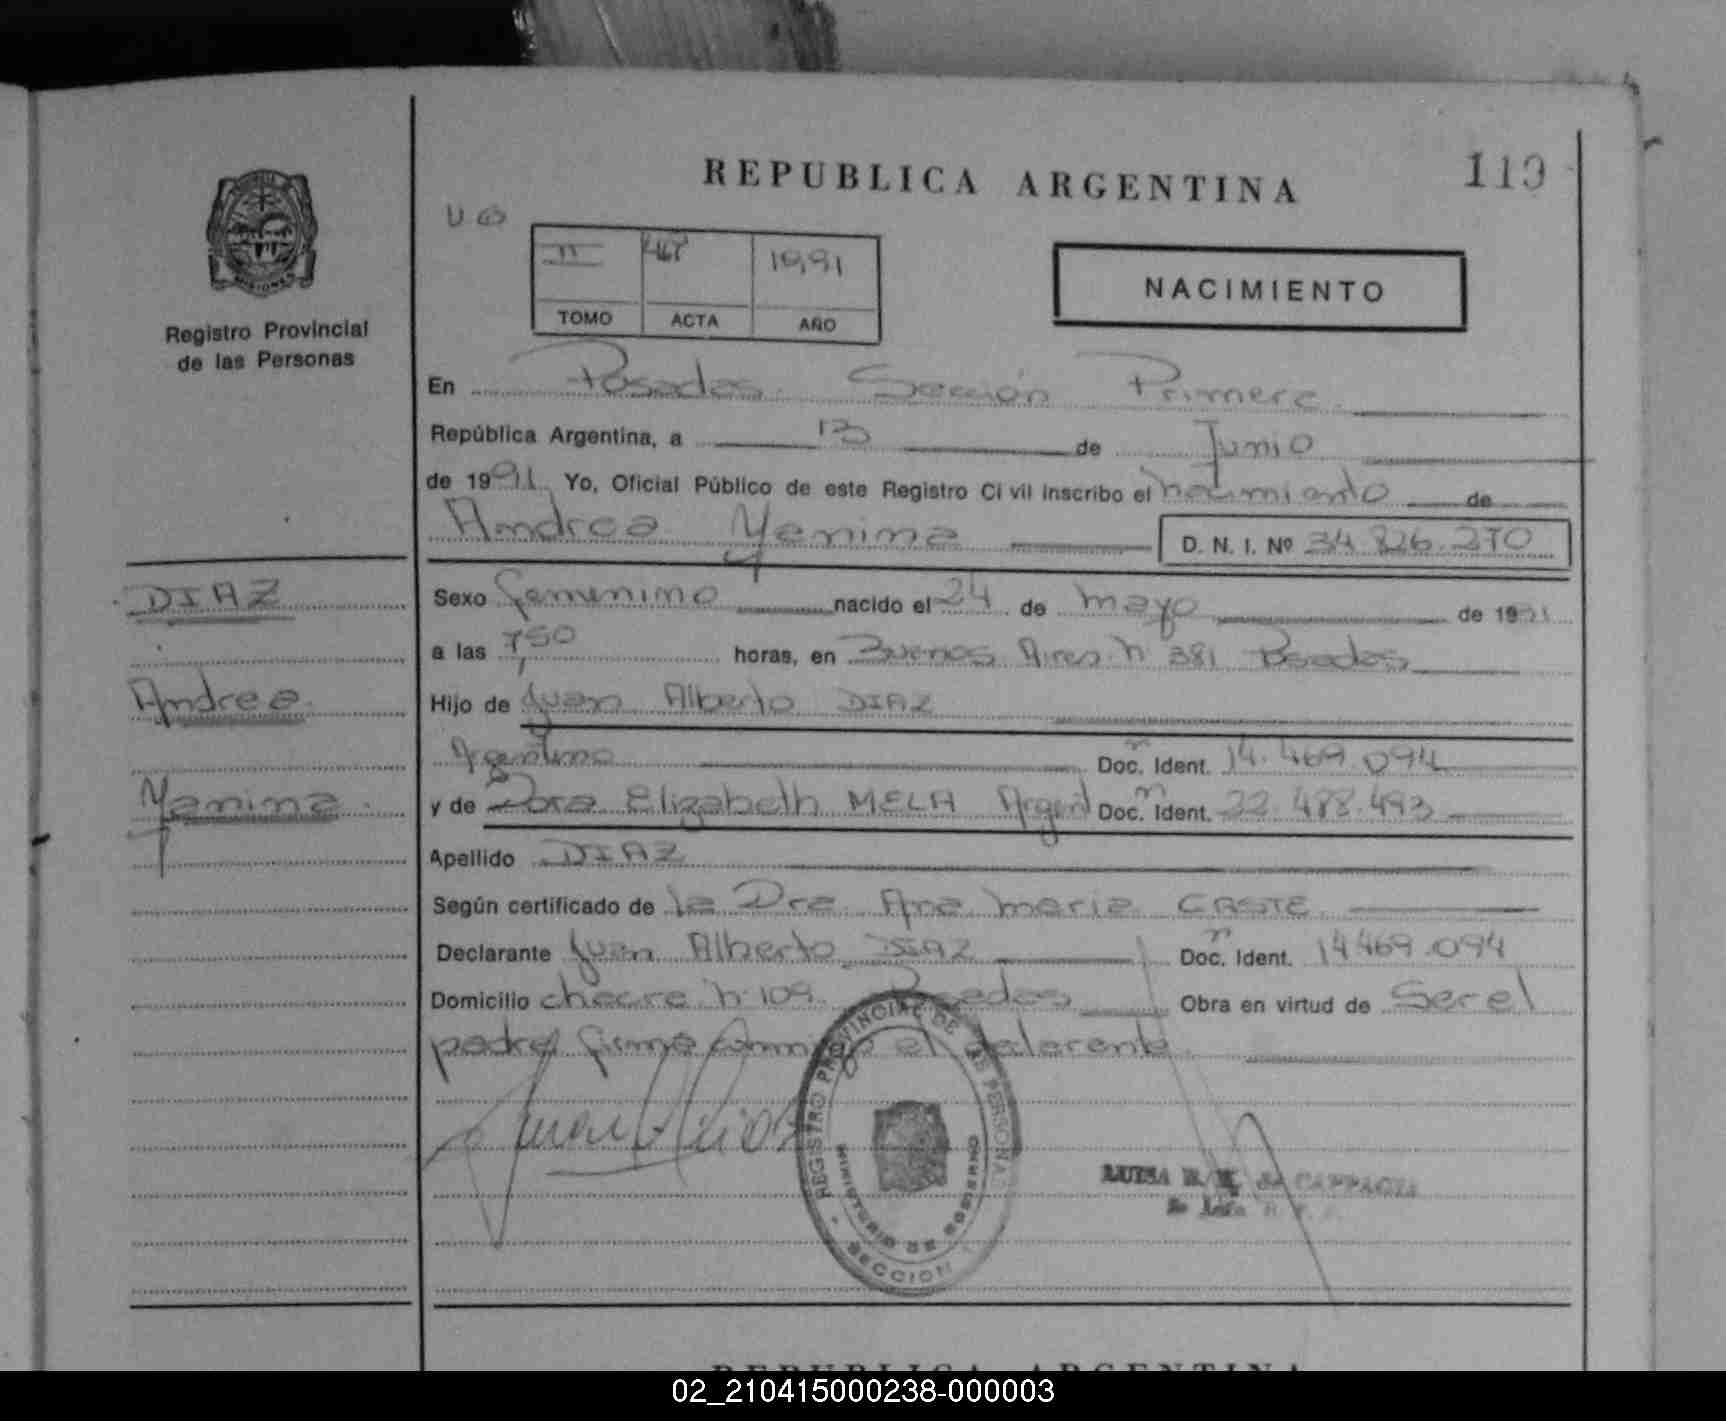 REPUBLICA ARGENTINA
119
II 467 1991
TOMO ACTA AÑO
NACIMIENTO
Registro Provincial
de las Personas
En Posadas Sección Primera
República Argentina, a 13 de Junio
de 1991 Yo, Oficial Público de este Registro Civil inscribo el nacimiento de
Andrea Yanina D. N. I. Nº 34.826.270
DIAZ
Sexo femenino nacido el 24 de mayo de 1991
a las 7,50 horas, en Buenos Aires n 381 Posadas
Andrea
Hijo de Juan Alberto DIAZ
Argentino Doc. Ident. 14.469.094
Yanina
y de Elizabeth MELA Argent Doc. Ident. 22.488.493
Apellido DIAZ
Según certificado de la Dra Ana Maria
Declarante Juan Alberto DIAZ Doc. Ident. 14469.094
Domicilio chacra n 109 Posadas Obra en virtud de Ser el
padre firma conmigo el
REGISTRO PROVINCIAL DE LAS PERSONAS
MINISTERIO DE GOBIERNO
SECCION
LUISA
REPUBLICA ARGENTINA
02_210415000238-000003